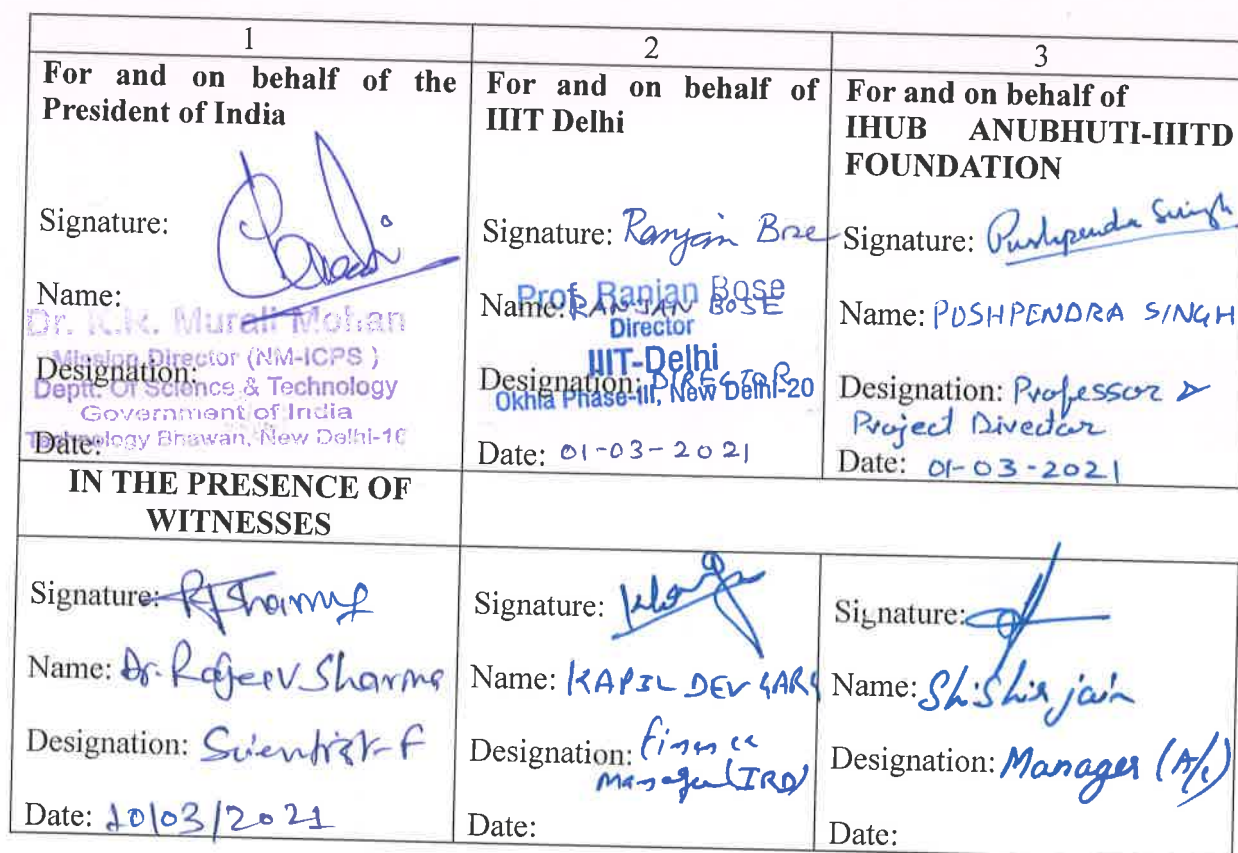 1
For and on behalf of the
President of India
Signature:
Name:
Dr. K.R. Murali Mohan
Mission Director (NM-ICPS )
Designation:
Deptt. Of Science & Technology
Government of India
Technology Bhawan, New Delhi-16
Date:
2
For and on behalf of
IIIT Delhi
Signature: Ranjan Bose
Prof. Ranjan Bose
Name: RANJAN BOSE
Director
IIIT-Delhi
Designation: DIRECTOR
Okhla Phase-III, New Delhi-20
Date: 01-03-2021
3
For and on behalf of
IHUB ANUBHUTI-IIITD
FOUNDATION
Signature: Pushpendra Singh
Name: PUSHPENDRA SINGH
Designation: Professor &
Project Director
Date: 01-03-2021
IN THE PRESENCE OF
WITNESSES
Signature: RSharma
Name: Dr. Rajeev Sharma
Designation: Scientist-F
Date: 10/03/2021
Signature:
Name: KAPIL DEV GARG
Designation: Finance
Manager (IRD)
Date:
Signature:
Name: Shishir jain
Designation: Manager (A/c)
Date: